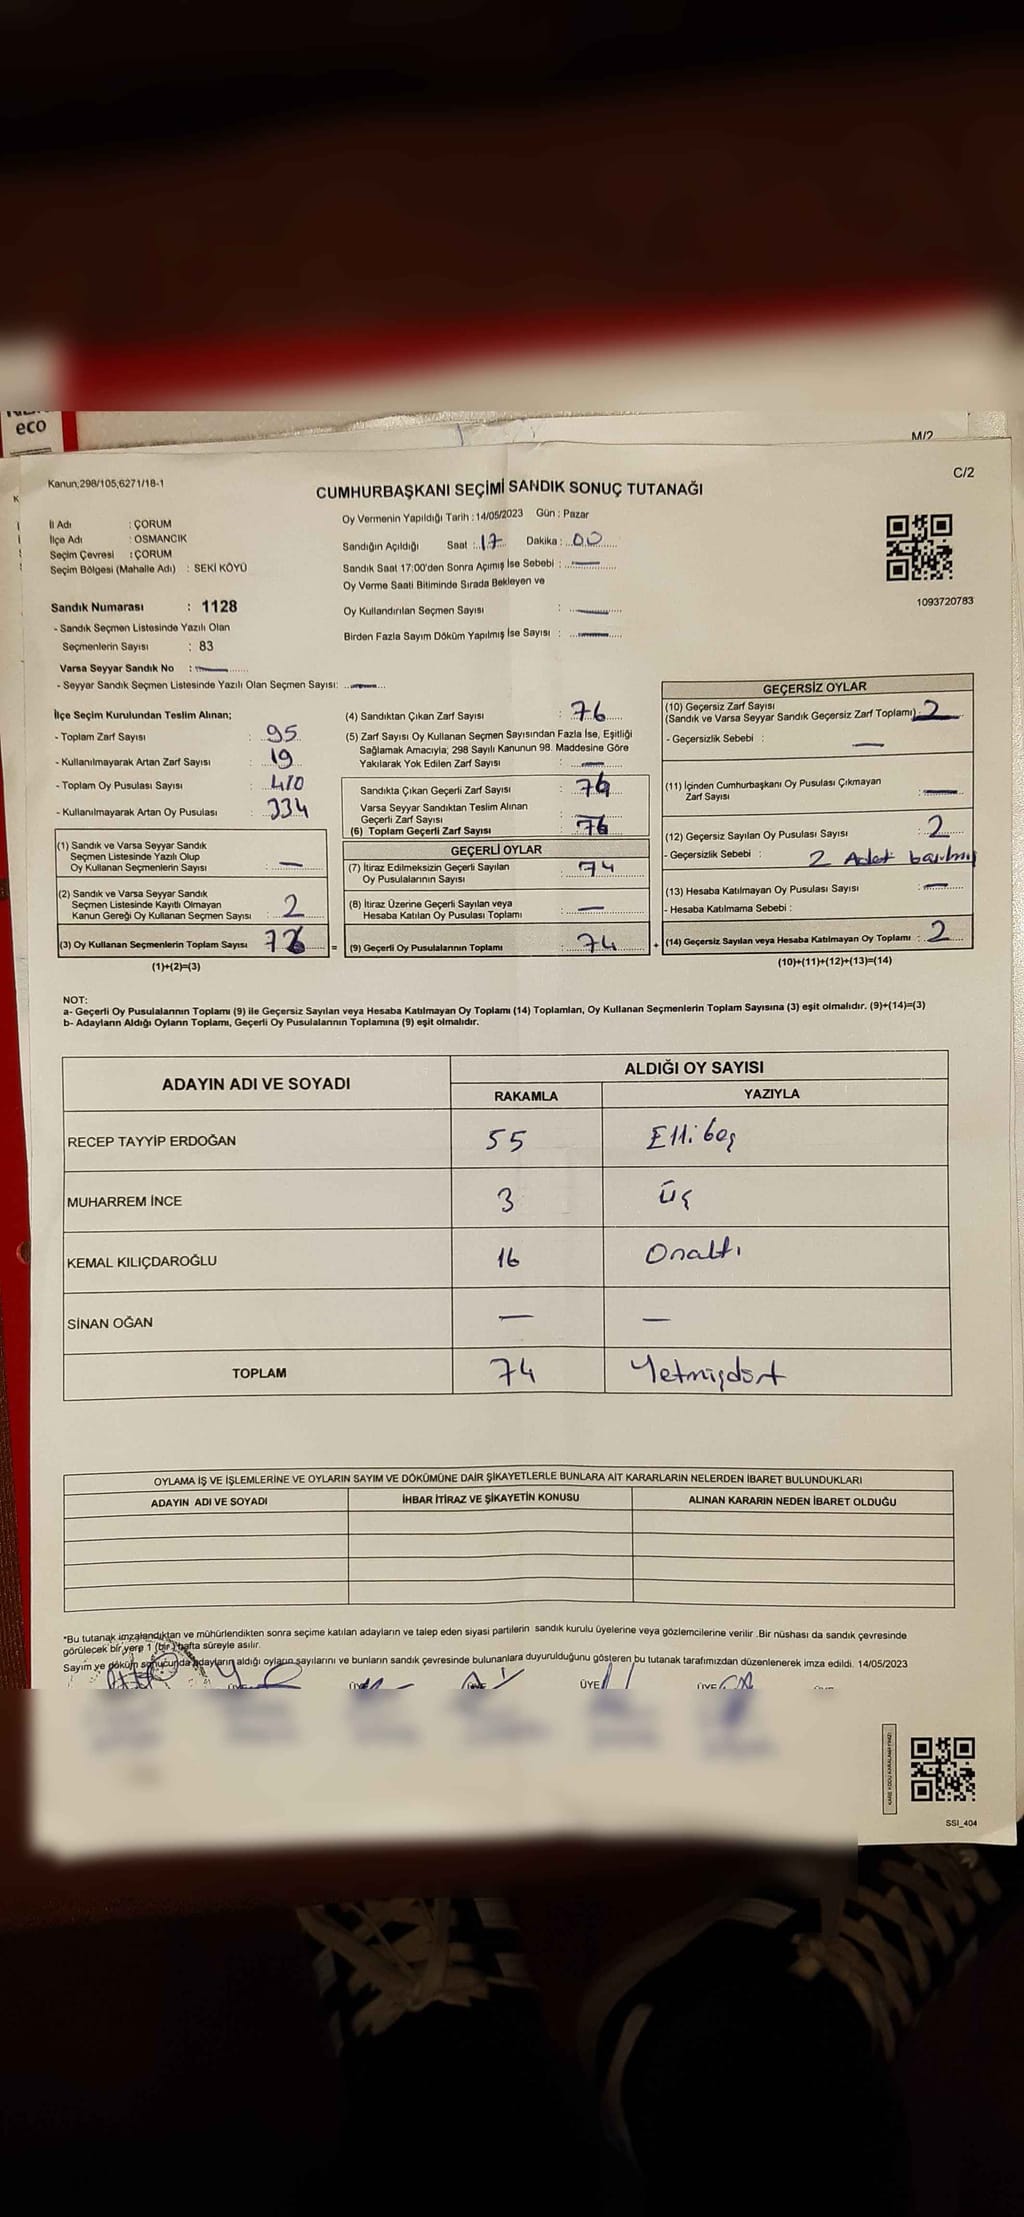 eco
M/2
C/2
Kanun;298/105,6271/18-1
CUMHURBAŞKANI SEÇİMİ SANDIK SONUÇ TUTANAĞI
İl Adı : ÇORUM
İlçe Adı : OSMANCIK
Seçim Çevresi : ÇORUM
Seçim Bölgesi (Mahalle Adı) : SEKİ KÖYÜ
Oy Vermenin Yapıldığı Tarih : 14/05/2023 Gün : Pazar
Sandığın Açıldığı Saat : 17 Dakika : 00
Sandık Saat 17:00'den Sonra Açımış İse Sebebi : —
Oy Verme Saati Bitiminde Sırada Bekleyen ve
Oy Kullandırılan Seçmen Sayısı : —
Birden Fazla Sayım Döküm Yapılmış İse Sayısı : —
1093720783
Sandık Numarası : 1128
- Sandık Seçmen Listesinde Yazılı Olan
Seçmenlerin Sayısı : 83
Varsa Seyyar Sandık No : —
- Seyyar Sandık Seçmen Listesinde Yazılı Olan Seçmen Sayısı: —
İlçe Seçim Kurulundan Teslim Alınan;
- Toplam Zarf Sayısı : 95
- Kullanılmayarak Artan Zarf Sayısı : 19
- Toplam Oy Pusulası Sayısı : 410
- Kullanılmayarak Artan Oy Pusulası : 334
(1) Sandık ve Varsa Seyyar Sandık
Seçmen Listesinde Yazılı Olup
Oy Kullanan Seçmenlerin Sayısı : —
(2) Sandık ve Varsa Seyyar Sandık
Seçmen Listesinde Kayıtlı Olmayan
Kanun Gereği Oy Kullanan Seçmen Sayısı : 2
(3) Oy Kullanan Seçmenlerin Toplam Sayısı
(1)+(2)=(3)
(4) Sandıktan Çıkan Zarf Sayısı : 76
(5) Zarf Sayısı Oy Kullanan Seçmen Sayısından Fazla İse, Eşitliği
Sağlamak Amacıyla; 298 Sayılı Kanunun 98. Maddesine Göre
Yakılarak Yok Edilen Zarf Sayısı : —
Sandıkta Çıkan Geçerli Zarf Sayısı : 76
Varsa Seyyar Sandıktan Teslim Alınan
Geçerli Zarf Sayısı : —
(6) Toplam Geçerli Zarf Sayısı : 76
GEÇERLİ OYLAR
(7) İtiraz Edilmeksizin Geçerli Sayılan
Oy Pusulalarının Sayısı : 74
(8) İtiraz Üzerine Geçerli Sayılan veya
Hesaba Katılan Oy Pusulası Toplamı : —
= (9) Geçerli Oy Pusulalarının Toplamı : 74 +
GEÇERSİZ OYLAR
(10) Geçersiz Zarf Sayısı
(Sandık ve Varsa Seyyar Sandık Geçersiz Zarf Toplamı) : 2
- Geçersizlik Sebebi : —
(11) İçinden Cumhurbaşkanı Oy Pusulası Çıkmayan
Zarf Sayısı : —
(12) Geçersiz Sayılan Oy Pusulası Sayısı : 2
- Geçersizlik Sebebi : 2 Adet
(13) Hesaba Katılmayan Oy Pusulası Sayısı : —
- Hesaba Katılmama Sebebi :
(14) Geçersiz Sayılan veya Hesaba Katılmayan Oy Toplamı : 2
(10)+(11)+(12)+(13)=(14)
NOT:
a- Geçerli Oy Pusulalarının Toplamı (9) ile Geçersiz Sayılan veya Hesaba Katılmayan Oy Toplamı (14) Toplamları, Oy Kullanan Seçmenlerin Toplam Sayısına (3) eşit olmalıdır. (9)+(14)=(3)
b- Adayların Aldığı Oyların Toplamı, Geçerli Oy Pusulalarının Toplamına (9) eşit olmalıdır.
ADAYIN ADI VE SOYADI
ALDIĞI OY SAYISI
RAKAMLA YAZIYLA
RECEP TAYYİP ERDOĞAN 55 Ellibeş
MUHARREM İNCE 3 Üç
KEMAL KILIÇDAROĞLU 16 Onaltı
SİNAN OĞAN — —
TOPLAM 74 Yetmişdört
OYLAMA İŞ VE İŞLEMLERİNE VE OYLARIN SAYIM VE DÖKÜMÜNE DAİR ŞİKAYETLERLE BUNLARA AİT KARARLARIN NELERDEN İBARET BULUNDUKLARI
ADAYIN ADI VE SOYADI İHBAR İTİRAZ VE ŞİKAYETİN KONUSU ALINAN KARARIN NEDEN İBARET OLDUĞU
*Bu tutanak imzalandıktan ve mühürlendikten sonra seçime katılan adayların ve talep eden siyasi partilerin sandık kurulu üyelerine veya gözlemcilerine verilir .Bir nüshası da sandık çevresinde
görülecek bir yere 1 (bir) hafta süreyle asılır.
Sayım ve döküm sonucunda adayların aldığı oyların sayılarını ve bunların sandık çevresinde bulunanlara duyurulduğunu gösteren bu tutanak tarafımızdan düzenlenerek imza edildi. 14/05/2023
ÜYE ÜYE ÜYE ÜYE ÜYE
SSI_404